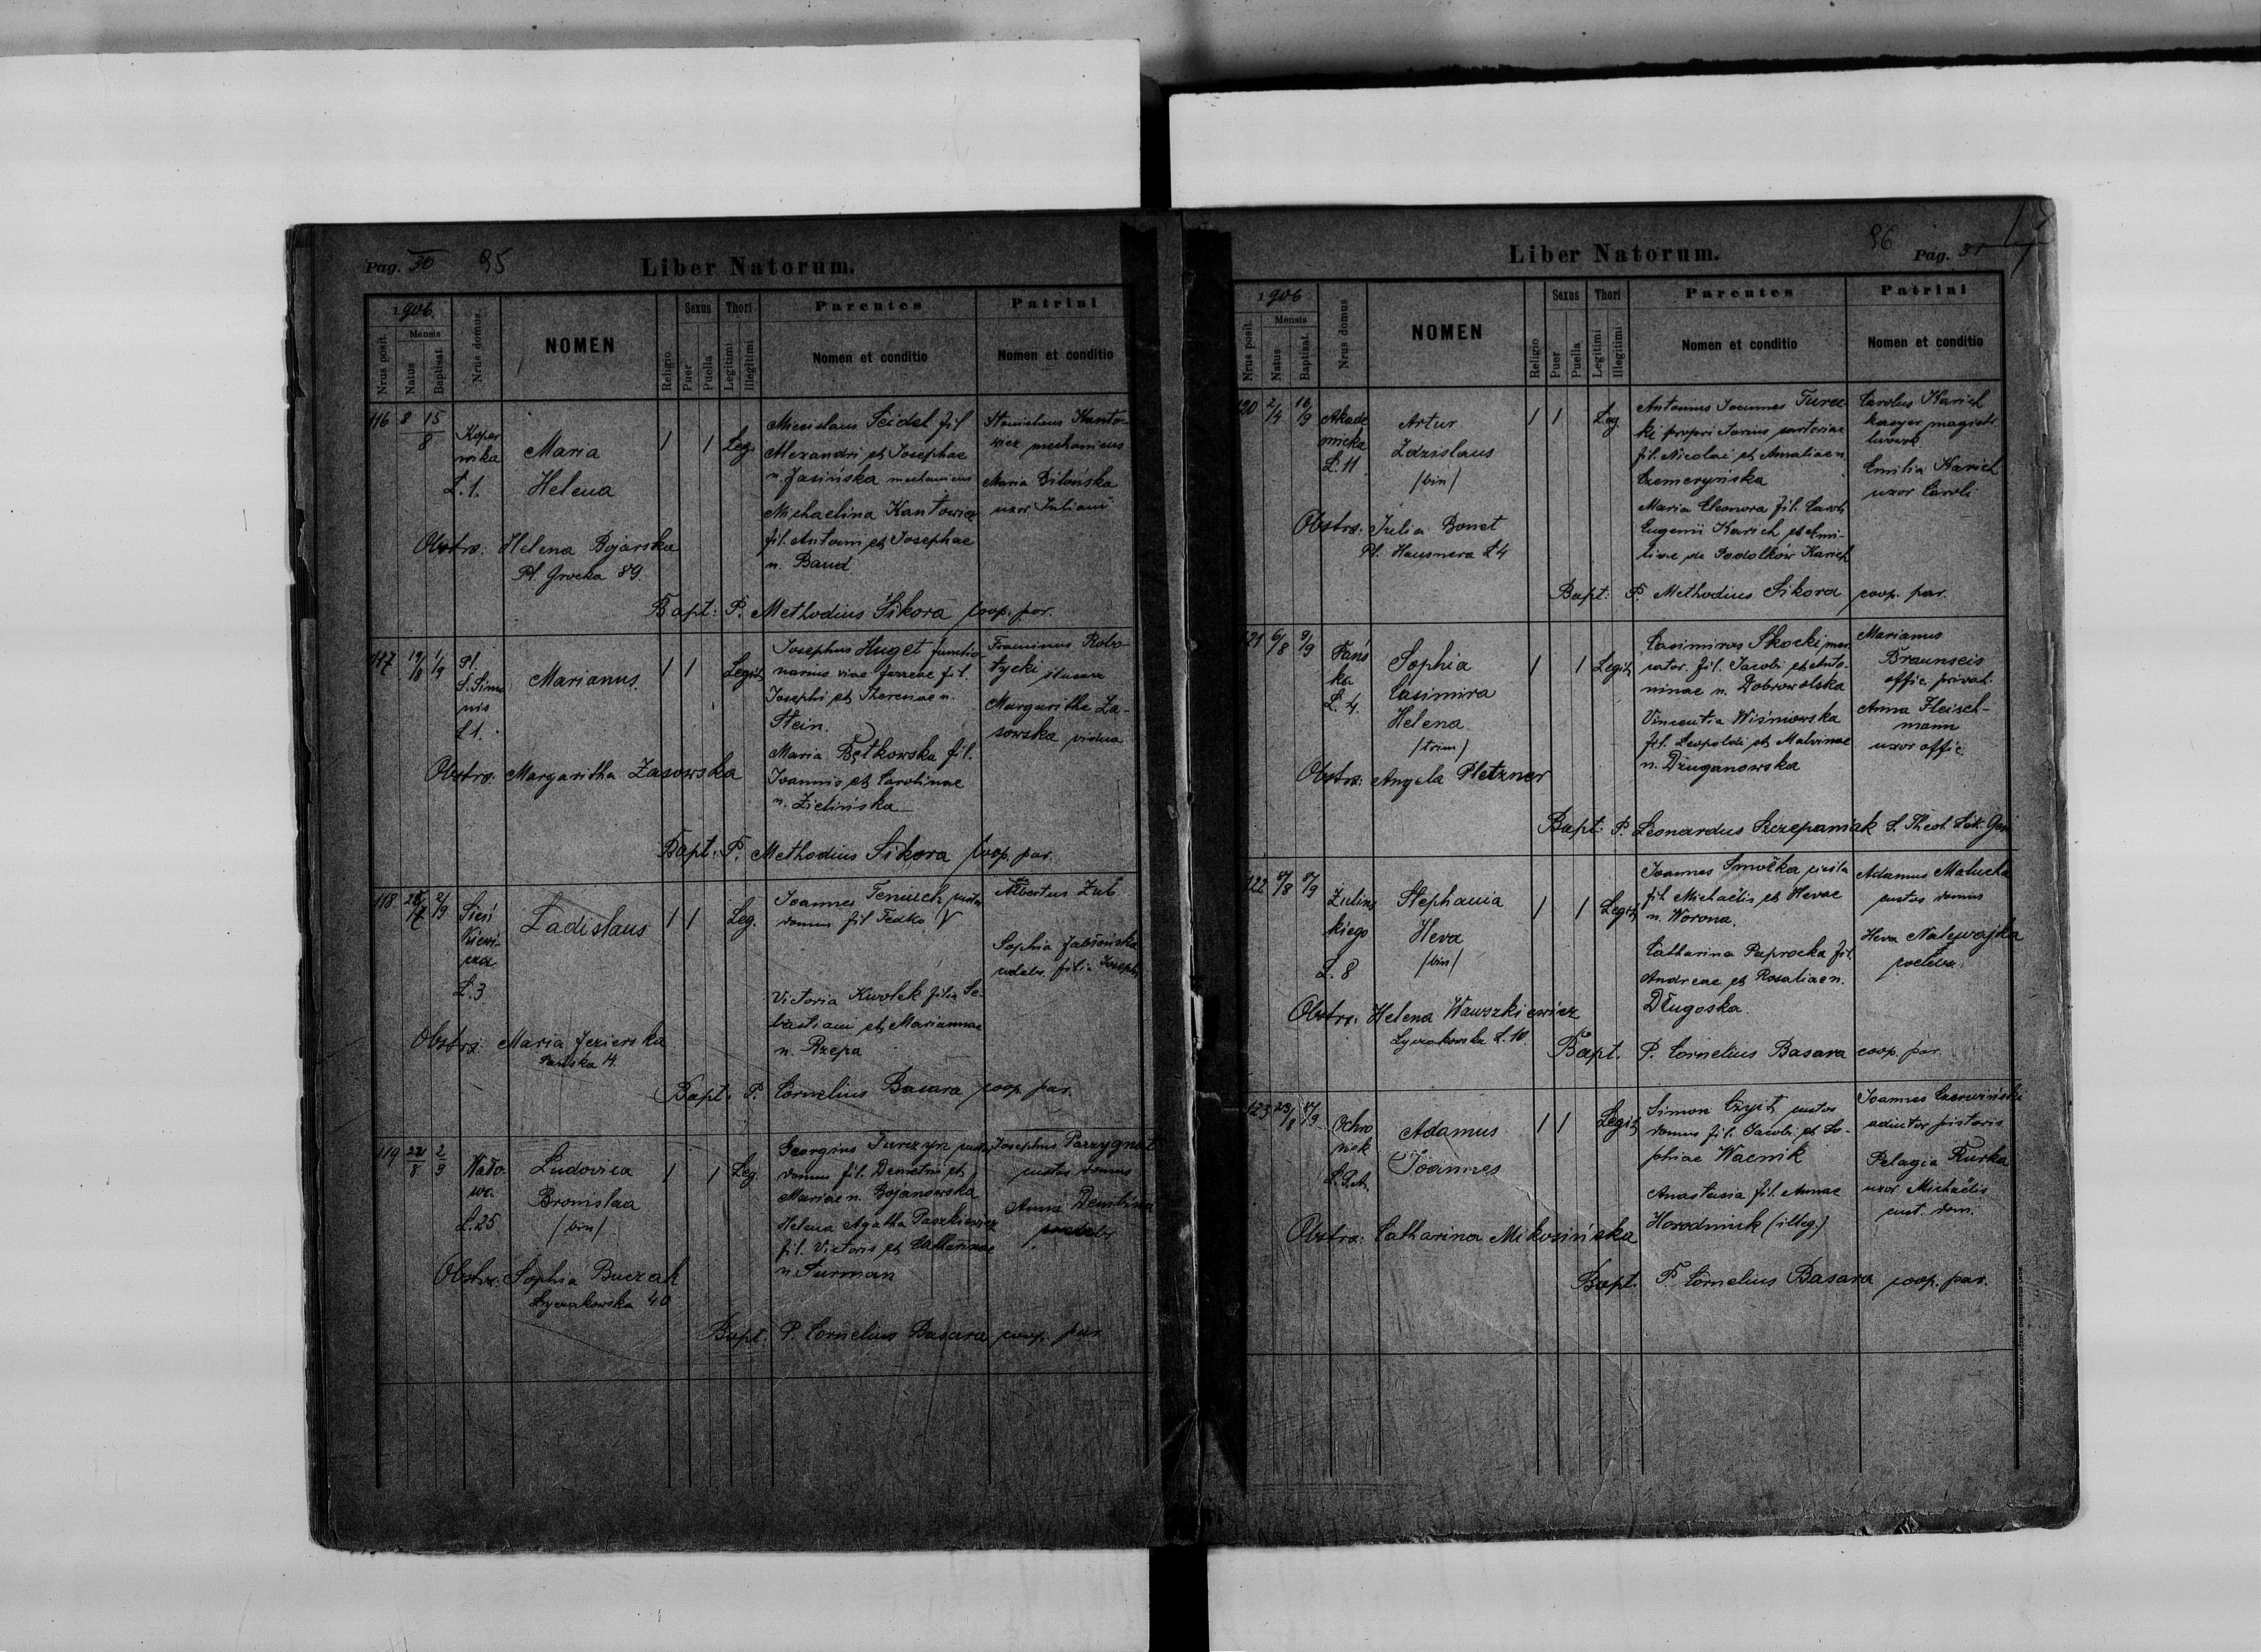 Pag. 30 95 Liber Natorum.
1906.
Nrus posit.
Mensis
Natus
Baptisat.
Nrus domus
NOMEN
Religio
Sexus
Puer
Puella
Thori
Legitimi
Illegitimi
Parentes
Nomen et conditio
Patrini
Nomen et conditio
116 8 15/8
Koper
nika
L. 1.
Maria
Helena
1 1 Leg.
Miecislaus Seidel fil
Alexandri et Josephae
n. Jasińska mechanicus
Michaelina Kantowicz
fil. Antonii et Josephae
n. Baud.
Stanislaus Kanto-
wicz mechanicus
Maria Bilińska
uxor Juliani
Obstrx: Helena Bojarska
Pl. Grocka 89.
Bapt: P. Methodius Sikora coop. par.
117 19/8 1/9
Pl.
S. Simo
nis
L 1.
Marianus
1 1 Legit.
Josephus Huget functio-
narius viae ferreae fil.
Josephi et Theresiae n.
Stein.
Maria Bętkowska fil.
Joannis et Carolinae
n. Zielińska
Robo-
tycki
Margaritha Za-
sowska vidua
Obstrx. Margaritha Zasowska
Bapt: P. Methodius Sikora coop. par.
118 2/9
Sien
kiewi-
cza
L. 3
Ladislaus
1 1 Leg.
Joannes Teniuch custos
domus fil Fedko
Victoria Kwolek filia Se-
bastiani et Mariannae
n. Rzepa
Albertus Zub
Sophia Jabłońska
filia Josephi
Obstrx: Maria Jezierska
Pańska 14.
Bapt. P. Cornelius Basara coop. par.
119 22/8 2/9
Wało-
wa
L. 25
Ludovica
Bronislaa
/bin/
1 1 Leg.
Georgius Jurczyn custos
domus fil. Demetrii et
Mariae n. Bojanowska
Helena Agatha Paszkiewicz
fil. Victoris et Catharinae
n. Furman
Josephus Parzygnat
custos domus
Anna
Obstrx. Sophia Buczak
Łyczakowska 40
Bapt. P. Cornelius Basara coop. par.
96 Pag. 31
Liber Natorum.
1906
Nrus posit.
Mensis
Natus
Baptisat.
Nrus domus
NOMEN
Religio
Sexus
Puer
Puella
Thori
Legitimi
Illegitimi
Parentes
Nomen et conditio
Patrini
Nomen et conditio
120 2/4 16/9
Akade
micka
L. 11
Artur
Zdzislaus
/bin/
1 1 Leg
Antonius Joannes Turec
ki
fil. Nicolai et Amaliae n
Czemeryńska
Maria Eleonora fil. Caroli
Eugenii Karich et Emi-
liae de Podolków Karich
Carolus Karich
kasyer magistr.
lwowsk.
Emilia Karich
uxor Caroli
Obstrx: Julia Bonet
Pl. Hausnera L 4
Bapt: P. Methodius Sikora coop. par.
121 6/8 9/9
Pańs
ka
L. 4.
Sophia
Casimira
Helena
/trim/
1 1 Legit.
Casimirus Skocki mer
cator. fil. Jacobi et Anto-
ninae n. Dobrowolska
Vincentia Wiśniowska
fil. Leopoldi et Malvinae
n. Dżuganowska
Marianus
Braunseis
offic. privat.
Anna Fleisch-
mann
uxor offic.
Obstrx: Angela Pletzner
Bapt: P. Leonardus Szczepaniak S. Theol. Lek.
122
Zulins
kiego
L. 8
Stephania
Heva
/bin/
1 1 Legit
Joannes Smočka
fil Michaëlis et Hevae
n. Worona.
Catharina Paprocka fil.
Andreae et Rosaliae n.
Długoska.
Adamus Malucha
custos domus
Heva Nalewajka
Obstrx: Helena Wawszkiewicz
Łyczakowska L. 10.
Bapt. P. Cornelius Basara coop. par.
123 23/8
Ochro
nek
Adamus
Joannes
1 1 Legit
Simon Czyż custos
domus fil. Jacobi et So-
phiae Wacnik
Anastasia fil. Annae
Horodniuk (illeg.)
Joannes Czerwiński
adiutor pistoris
Pelagia Kurka
uxor Michaëlis
cust. dom.
Obstrx: Catharina Mikosińska
Bapt. P. Cornelius Basara coop. par.